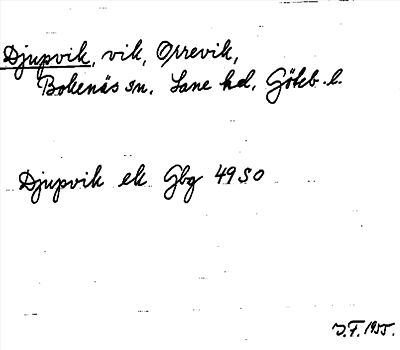 Djupvik, vik, Orrevik,
Bokenäs sn. Lane hd. Göteb. l.
Djupvik ek Gbg 49 SO
J.F. 1955.